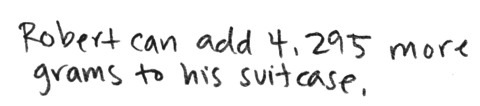 Robert can add 4,295 more
grams to his suitcase.